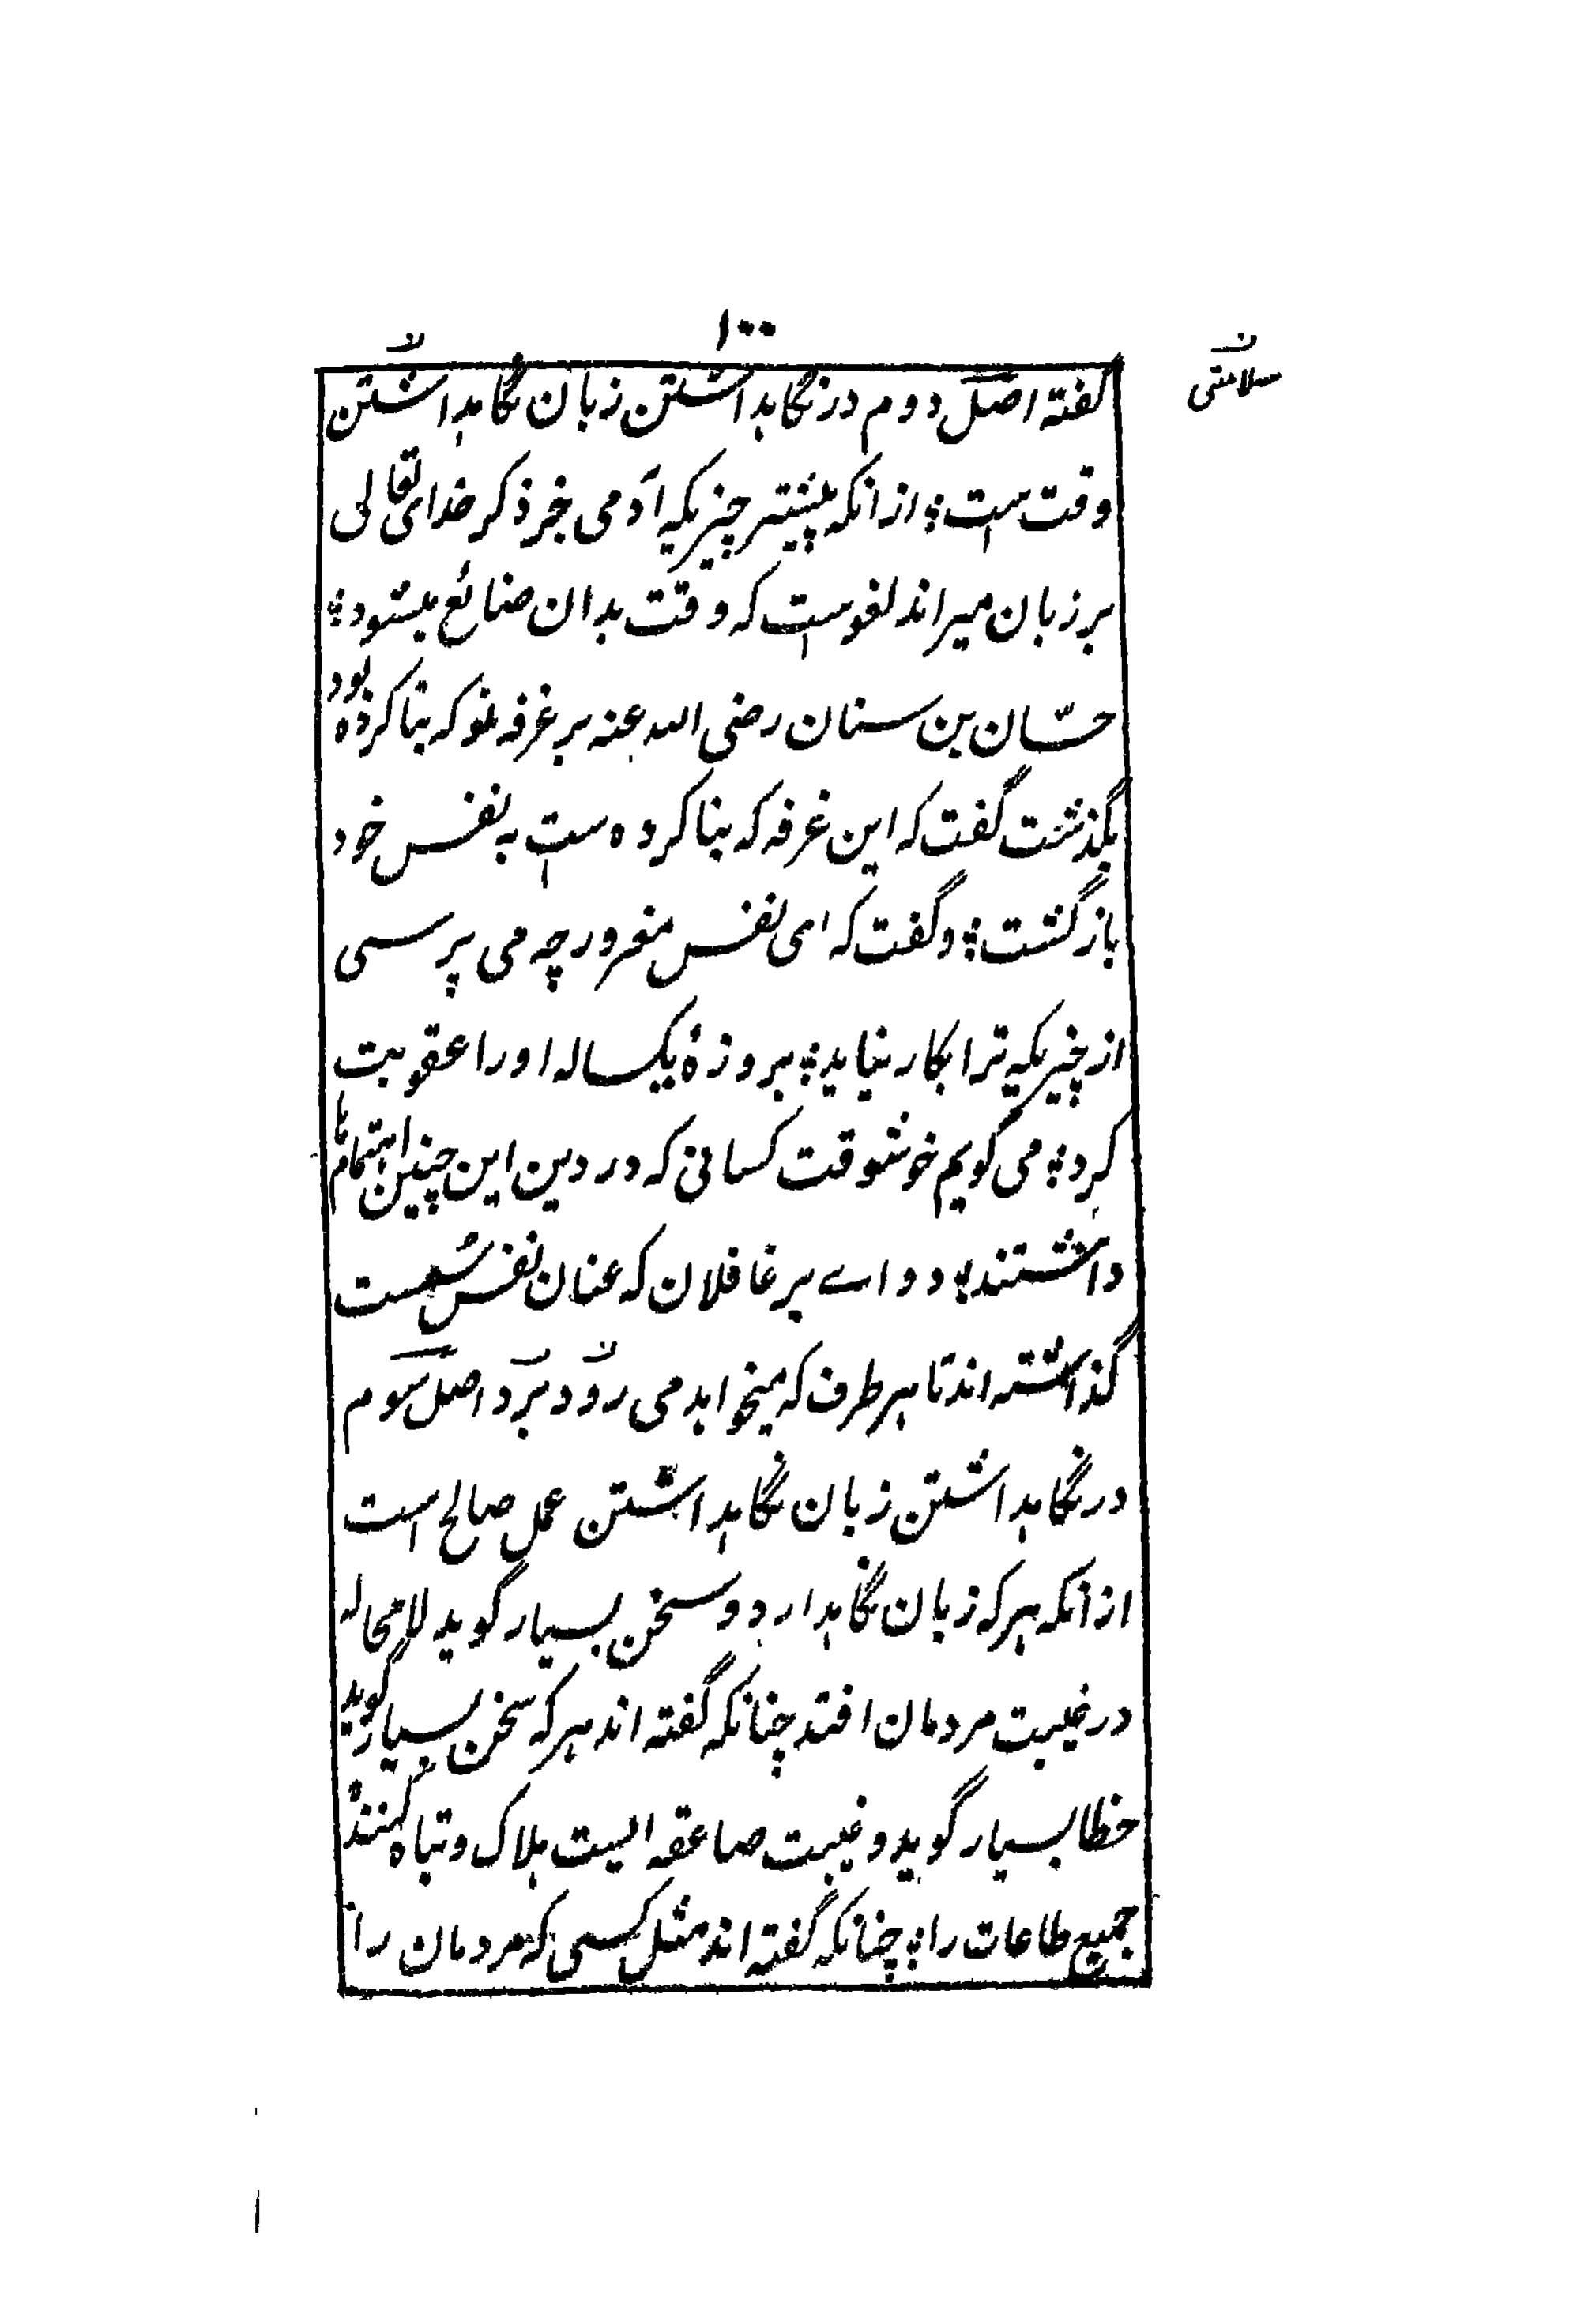 ۱۰۰
سلامتی
گفته اصل دوم در نگاهداشتن زبان نگاهداشتن
وقت ست؛ ازانکه بیشتر چیزیکه آدمی بجز ذکر خدای تعالی
بر زبان میراند لغوست که وقت بدان ضائع میشود؛
حسّان بن سنان رضی الله عنه بر غرفه نو که بنا کرده بود
بگذشت گفت که این غرفه که بنا کرده ست به نفس خود
بازگشت؛ و گفت که ای نفس مغرور چه می پرسی
از چیزیکه ترا بکار نیاید؛ بروزهٔ یکساله اورا عقوبت
کرد؛ می گویم خوشوقت کسانی که در دین این چنین اهتمامها
داشتند؛ و وای بر غافلان که عنان نفس سست
گذاشته اند تا هر طرف که میخواهد می رود اصل سوم
در نگاهداشتن زبان نگاهداشتن عمل صالح است
ازانکه هر که زبان نگاهدارد و سخن بسیار گوید لامحاله
در غیبت مردمان افتد چنانکه گفته اند هر که سخن بسیار گوید
خطا بسیار گوید و غیبت صاعقه ایست هلاک و تباه کننده
جمیع طاعات را؛ چنانکه گفته اند مثل کسی که مردمان را